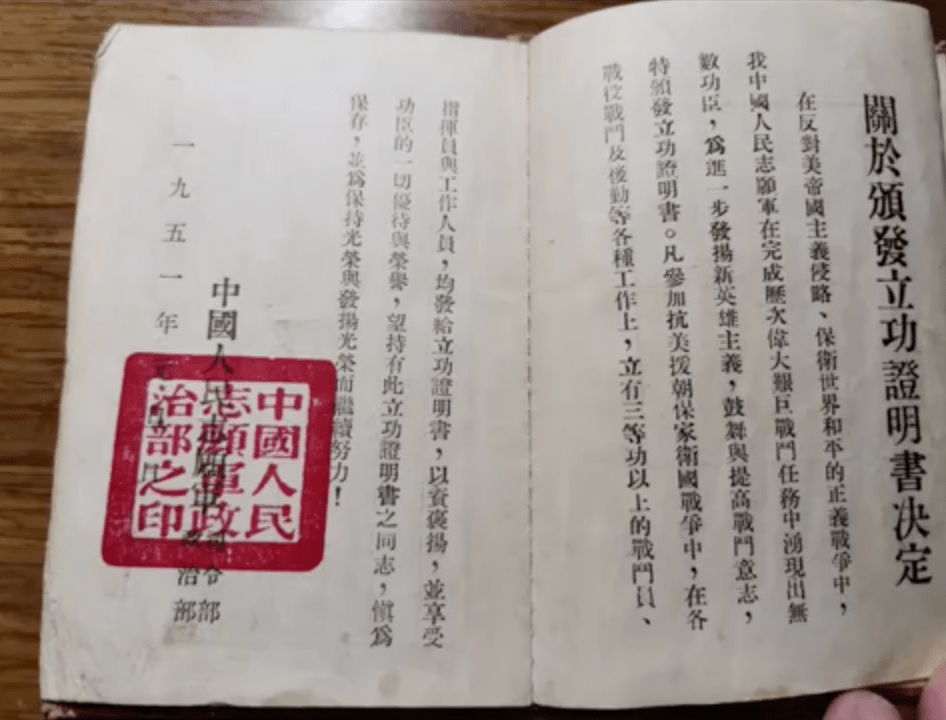 關於頒發立功證明書决定
在反對美帝國主義侵略、保衛世界和平的正義戰爭中，
我中國人民志願軍在完成歷次偉大艱巨戰鬥任務中湧現出無
數功臣，爲進一步發揚新英雄主義，鼓舞與提高戰鬥意志，
特頒發立功證明書。凡參加抗美援朝保家衛國戰爭中，在各
戰役戰鬥及後勤等各種工作上，立有三等功以上的戰鬥員、
指揮員與工作人員，均發給立功證明書，以資褒揚，並享受
功臣的一切優待與榮譽，望持有此立功證明書之同志，慎爲
保存，並爲保持光榮與發揚光榮而繼續努力！
中國人民志願軍司令部
政治部
一九五一年元月
中國人民
志願軍政
治部之印